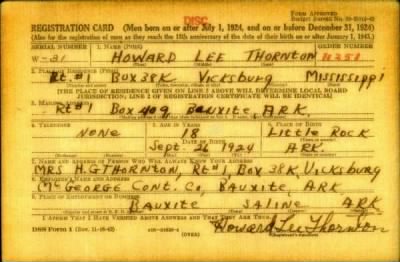 DISC.
FORM APPROVED
REGISTRATION CARD—(Men born on or after July 1, 1924, and on or before December 31, 1924)
(Also for the registration of men as they reach the 18th anniversary of the date of their birth on or after January 1, 1943.)
SERIAL NUMBER 1. NAME (Print) ORDER NUMBER
W-31 HOWARD LEE THORNTON
Rt. #1 Box 38K Vicksburg Mississippi
[THE PLACE OF RESIDENCE GIVEN ON LINE 2 ABOVE WILL DETERMINE LOCAL BOARD
JURISDICTION; LINE 2 OF REGISTRATION CERTIFICATE WILL BE IDENTICAL]
3. MAILING ADDRESS
Rt #1 Box 409 Bauxite ARK.
4. TELEPHONE 5. AGE IN YEARS 6. PLACE OF BIRTH
NONE 18 Little Rock
DATE OF BIRTH
Sept. 26 1924 ARK.
7. NAME AND ADDRESS OF PERSON WHO WILL ALWAYS KNOW YOUR ADDRESS
MRS H.G THORNTON, Rt #1, Box 38K, Vicksburg
8. EMPLOYER'S NAME AND ADDRESS
McGEORGE Cont. Co, BAUXITE, ARK
9. PLACE OF EMPLOYMENT OR BUSINESS
BAUXITE SALINE ARK
I AFFIRM THAT I HAVE VERIFIED ABOVE ANSWERS AND THAT THEY ARE TRUE.
DSS Form 1
Howard Lee Thornton